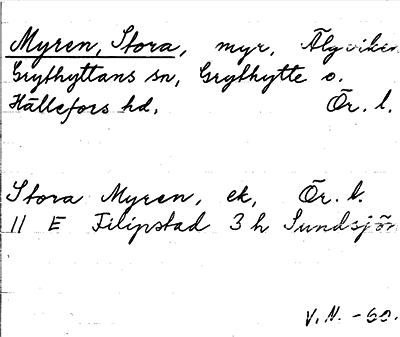 Myren, Stora, myr, Älgviken
Grythyttans sn, Grythytte o.
Hällefors hd, Ör. l.
Stora Myren, ek, Ör. l.
11 E Filipstad 3 h Sundsjön
V.N. -60.